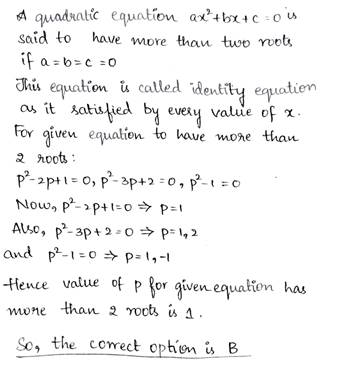 A quadratic equation ax²+bx+c=0 is
said to have more than two roots
if a=b=c=0
This equation is called identity equation
as it satisfied by every value of x.
For given equation to have more than
2 roots:
p²-2p+1=0, p²-3p+2=0, p²-1=0
Now, p²-2p+1=0 ⇒ p=1
Also, p²-3p+2=0 ⇒ p=1,2
and p²-1=0 ⇒ p=1,-1
Hence value of p for given equation has
more than 2 roots is 1.
So, the correct option is B